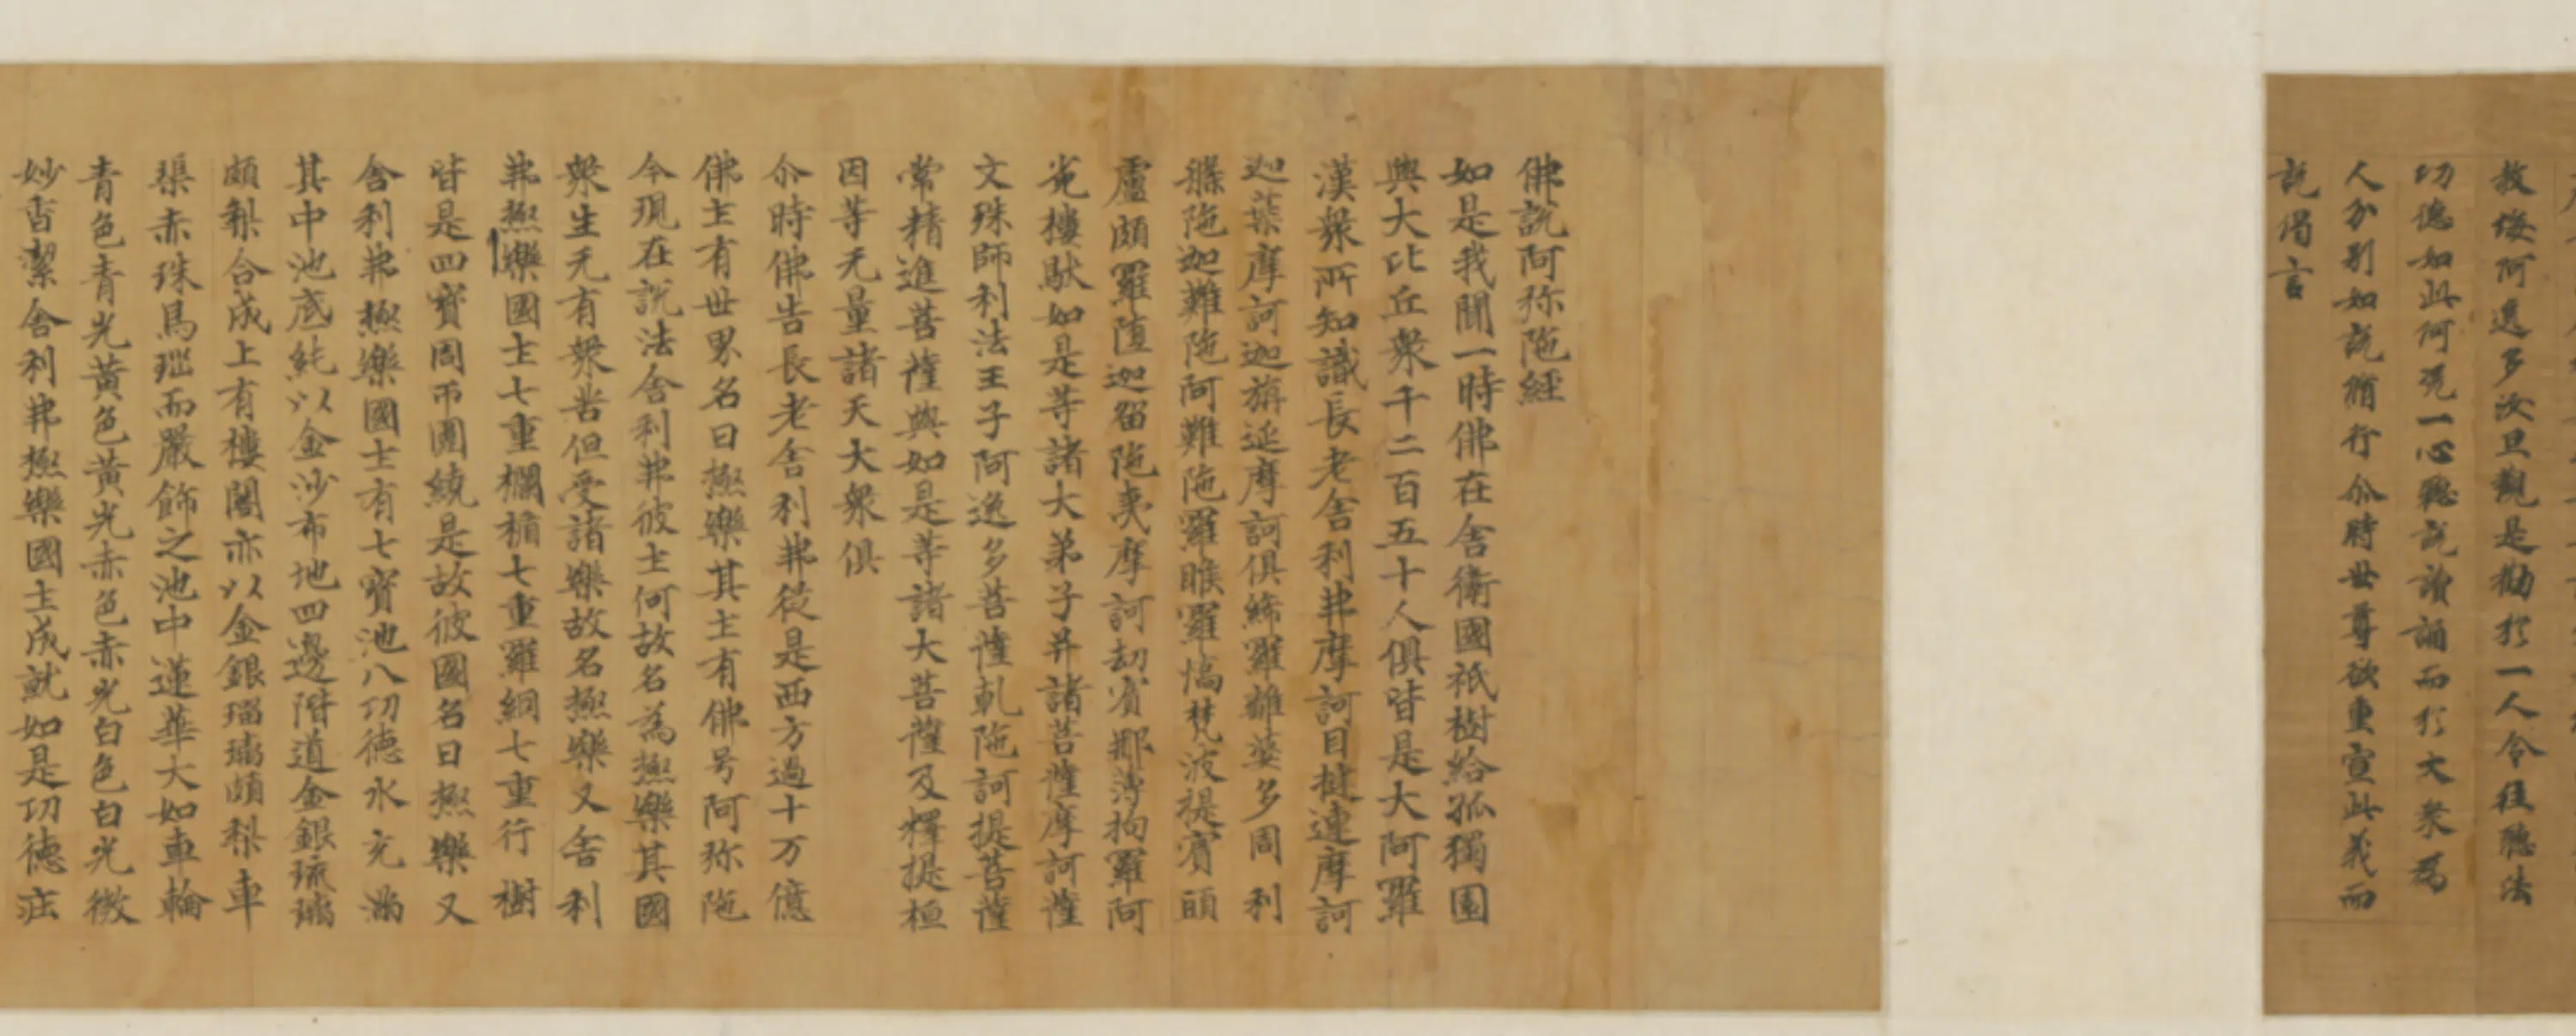 教後阿逸多汝且觀是勸於一人令往聽法
功德如此何況一心聽說讀誦而於大衆為
人分別如說脩行尒時世尊欲重宣此義而
說偈言
佛說阿弥陁經
如是我聞一時佛在舍衛國祇樹給孤獨園
與大比丘衆千二百五十人俱皆是大阿羅
漢衆所知識長老舍利弗摩訶目揵連摩訶
迦葉摩訶迦旃延摩訶俱絺羅離婆多周利
槃陁迦難陁阿難陁羅睺羅憍梵波提賓頭
盧頗羅墮迦留陁夷摩訶劫賓那薄拘羅阿
㝹樓馱如是等諸大弟子并諸菩薩摩訶薩
文殊師利法王子阿逸多菩薩乹陁訶提菩薩
常精進菩薩與如是等諸大菩薩及釋提桓
因等无量諸天大衆俱
尒時佛告長老舍利弗從是西方過十万億
佛土有世界名曰極樂其土有佛号阿弥陁
今現在說法舍利弗彼土何故名為極樂其國
衆生无有衆苦但受諸樂故名極樂又舍利
弗極樂國土七重欄楯七重羅網七重行樹
皆是四寶周帀圍繞是故彼國名曰極樂又
舍利弗極樂國土有七寶池八功德水充滿
其中池底純以金沙布地四邊階道金銀琉璃
頗梨合成上有樓閣亦以金銀瑠璃頗梨車
𤦲赤珠馬瑙而嚴飾之池中蓮華大如車輪
青色青光黃色黃光赤色赤光白色白光微
妙香潔舍利弗極樂國土成就如是功德莊